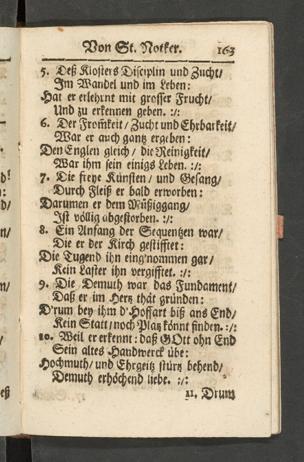 Von St. Notker. 163
5. Deß Klosters Disciplin und Zucht/
Im Wandel und im Leben:
Hat er erlehrnt mit grosser Frucht/
Und zu erkennen geben. :/:
6. Der From̃keit/ Zucht und Ehrbarkeit/
War er auch gantz ergeben:
Den Englen gleich/ die Reinigkeit/
War ihm sein einigs Leben. :/:
7. Die freye Künsten/ und Gesang/
Durch Fleiß er bald erworben:
Darumen er dem Müßiggang/
Ist völlig abgestorben. :/:
8. Ein Anfang der Sequentzen war/
Die er der Kirch gestifftet:
Die Tugend ihn eing'nommen gar/
Kein Laster ihn vergifftet. :/:
9. Die Demuth war das Fundament/
Daß er im Hertz thät gründen:
D'rum bey ihm d'Hoffart biß ans End/
Kein Statt/ noch Platz könnt finden. :/:
10. Weil er erkennt: daß GOtt ohn End
Sein altes Handwerck übe:
Hochmuth/ und Ehrgeitz stürtz behend/
Demuth erhöchend liebe. :/:
11. Drum